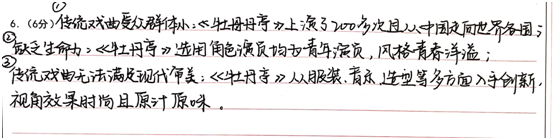 6.(6分)①传统戏曲受众群体小:《牡丹亭》上演了200多次且从中国走向世界各国;
②缺乏生命力:《牡丹亭》选用角色演员均为青年演员,风格青春洋溢;
③传统戏曲无法满足现代审美:《牡丹亭》从服装、音乐、造型等多方面入手创新,
视角效果时尚且原汁原味。